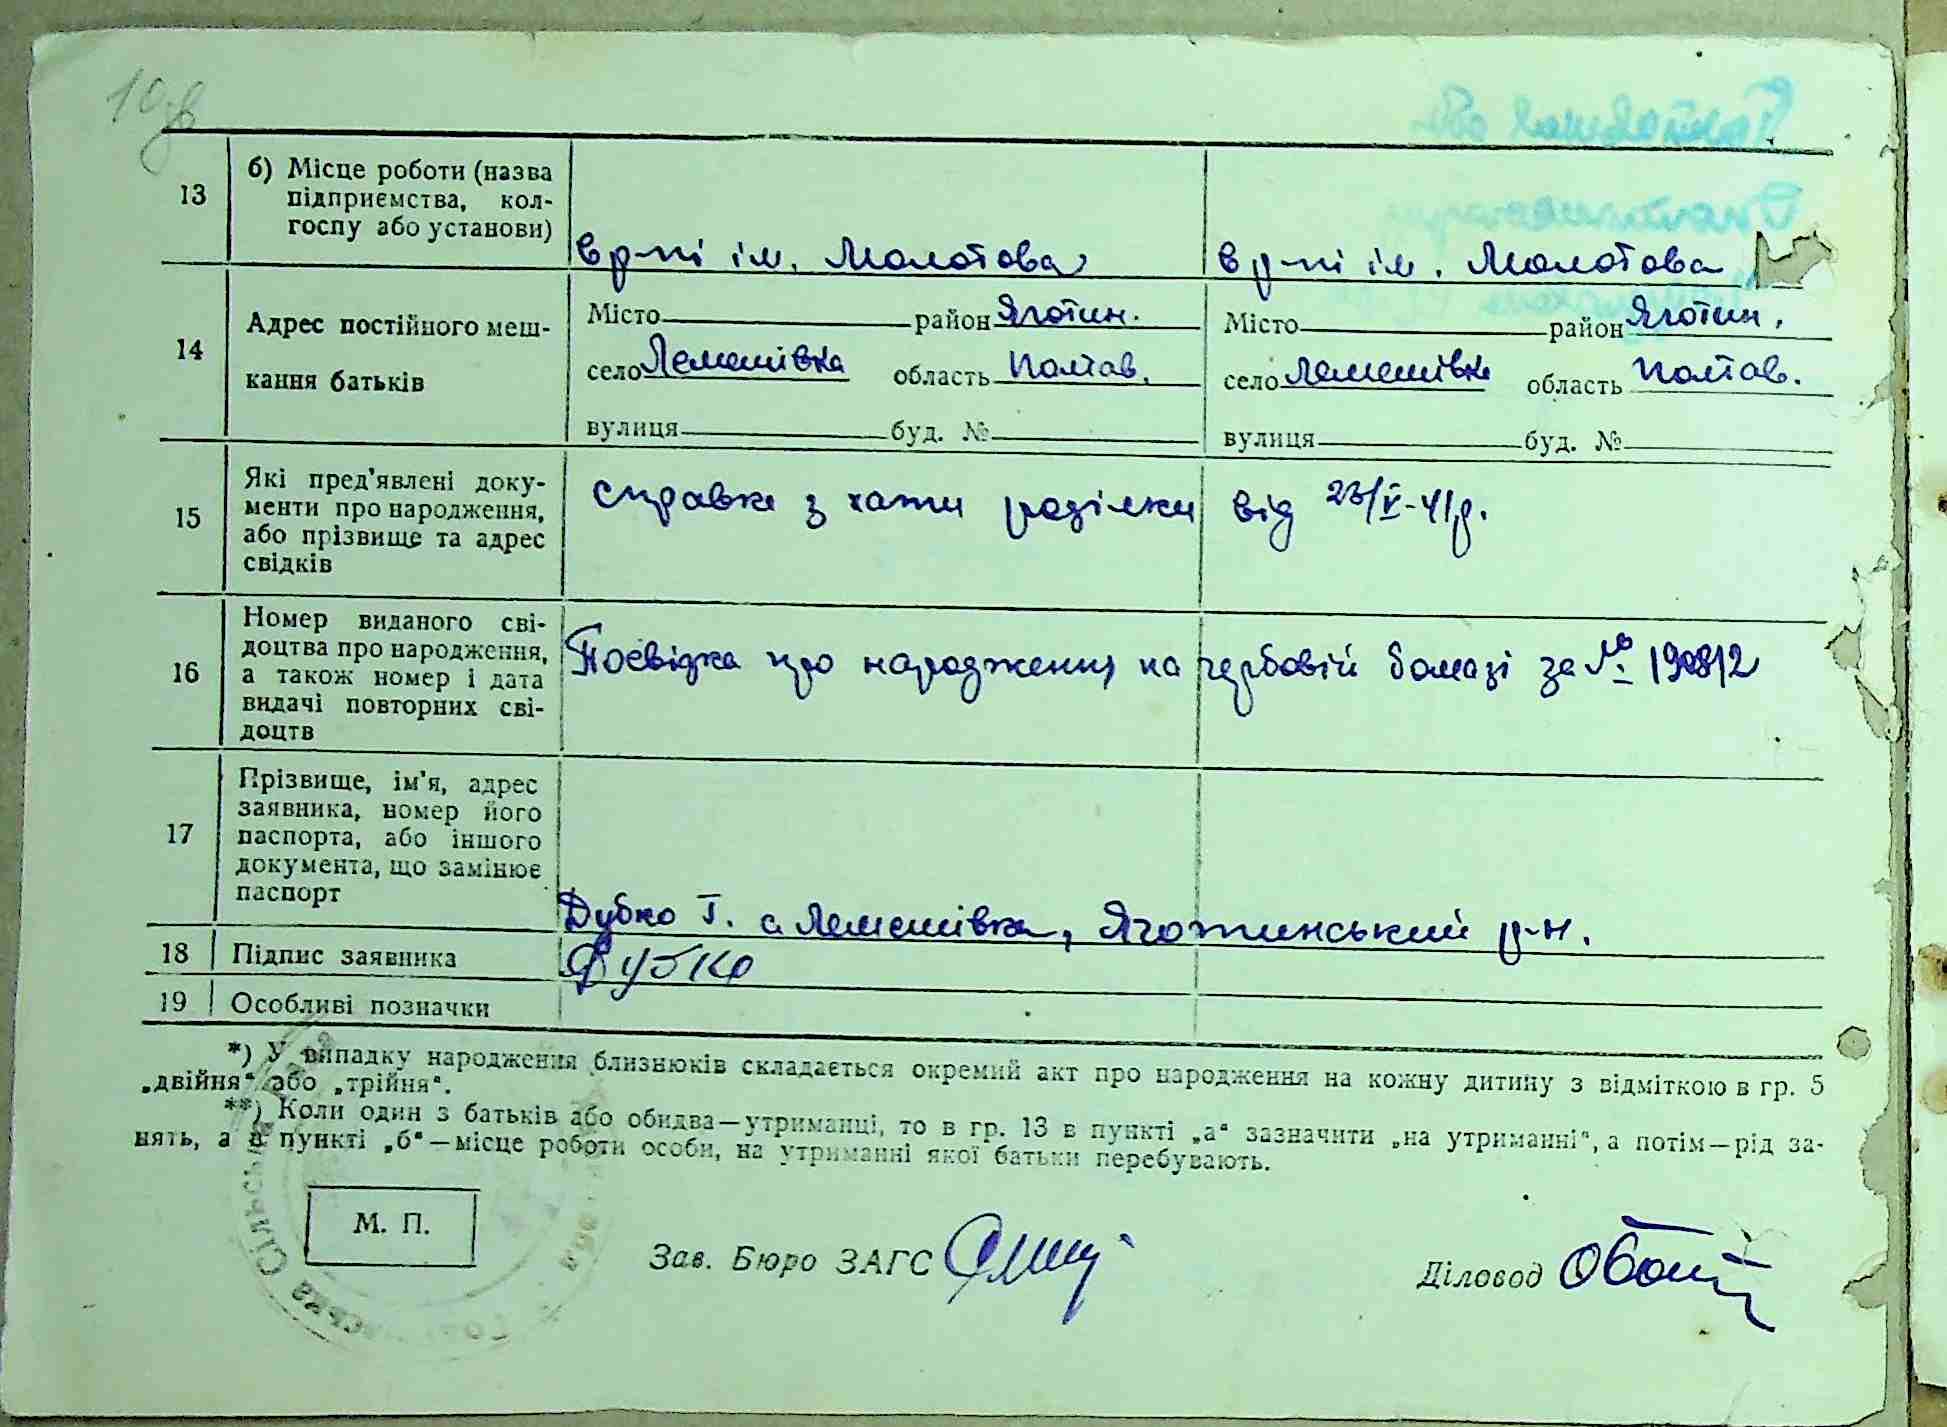 13
б) Місце роботи (назва
підприємства, кол-
госпу або установи)
в р-ні ім. Молотова
в р-ні ім. Молотова
14
Адрес постійного меш-
кання батьків
Місто район Яготин.
село Лемешівка область Полтав.
вулиця буд. №
Місто район Яготин.
село Лемешівка область Полтав.
вулиця буд. №
15
Які пред'явлені доку-
менти про народження,
або прізвище та адрес
свідків
справка з хати від 23/V-41р.
16
Номер виданого сві-
доцтва про народження,
а також номер і дата
видачі повторних сві-
доцтв
Посвідка про народження на гербовій бомазі за №
17
Прізвище, ім'я, адрес
заявника, номер його
паспорта, або іншого
документа, що замінює
паспорт
Дубко Г. с Лемешівка, Яготинський р-н.
18 Підпис заявника
Дубко
19 Особливі позначки
*) У випадку народження близнюків складається окремий акт про народження на кожну дитину з відміткою в гр. 5
„двійня“ або „трійня“.
**) Коли один з батьків або обидва—утриманці, то в гр. 13 в пункті „а“ зазначити „на утриманні“, а потім—рід за-
нять, а в пункті „б“—місце роботи особи, на утриманні якої батьки перебувають.
М. П.
Зав. Бюро ЗАГС
Діловод